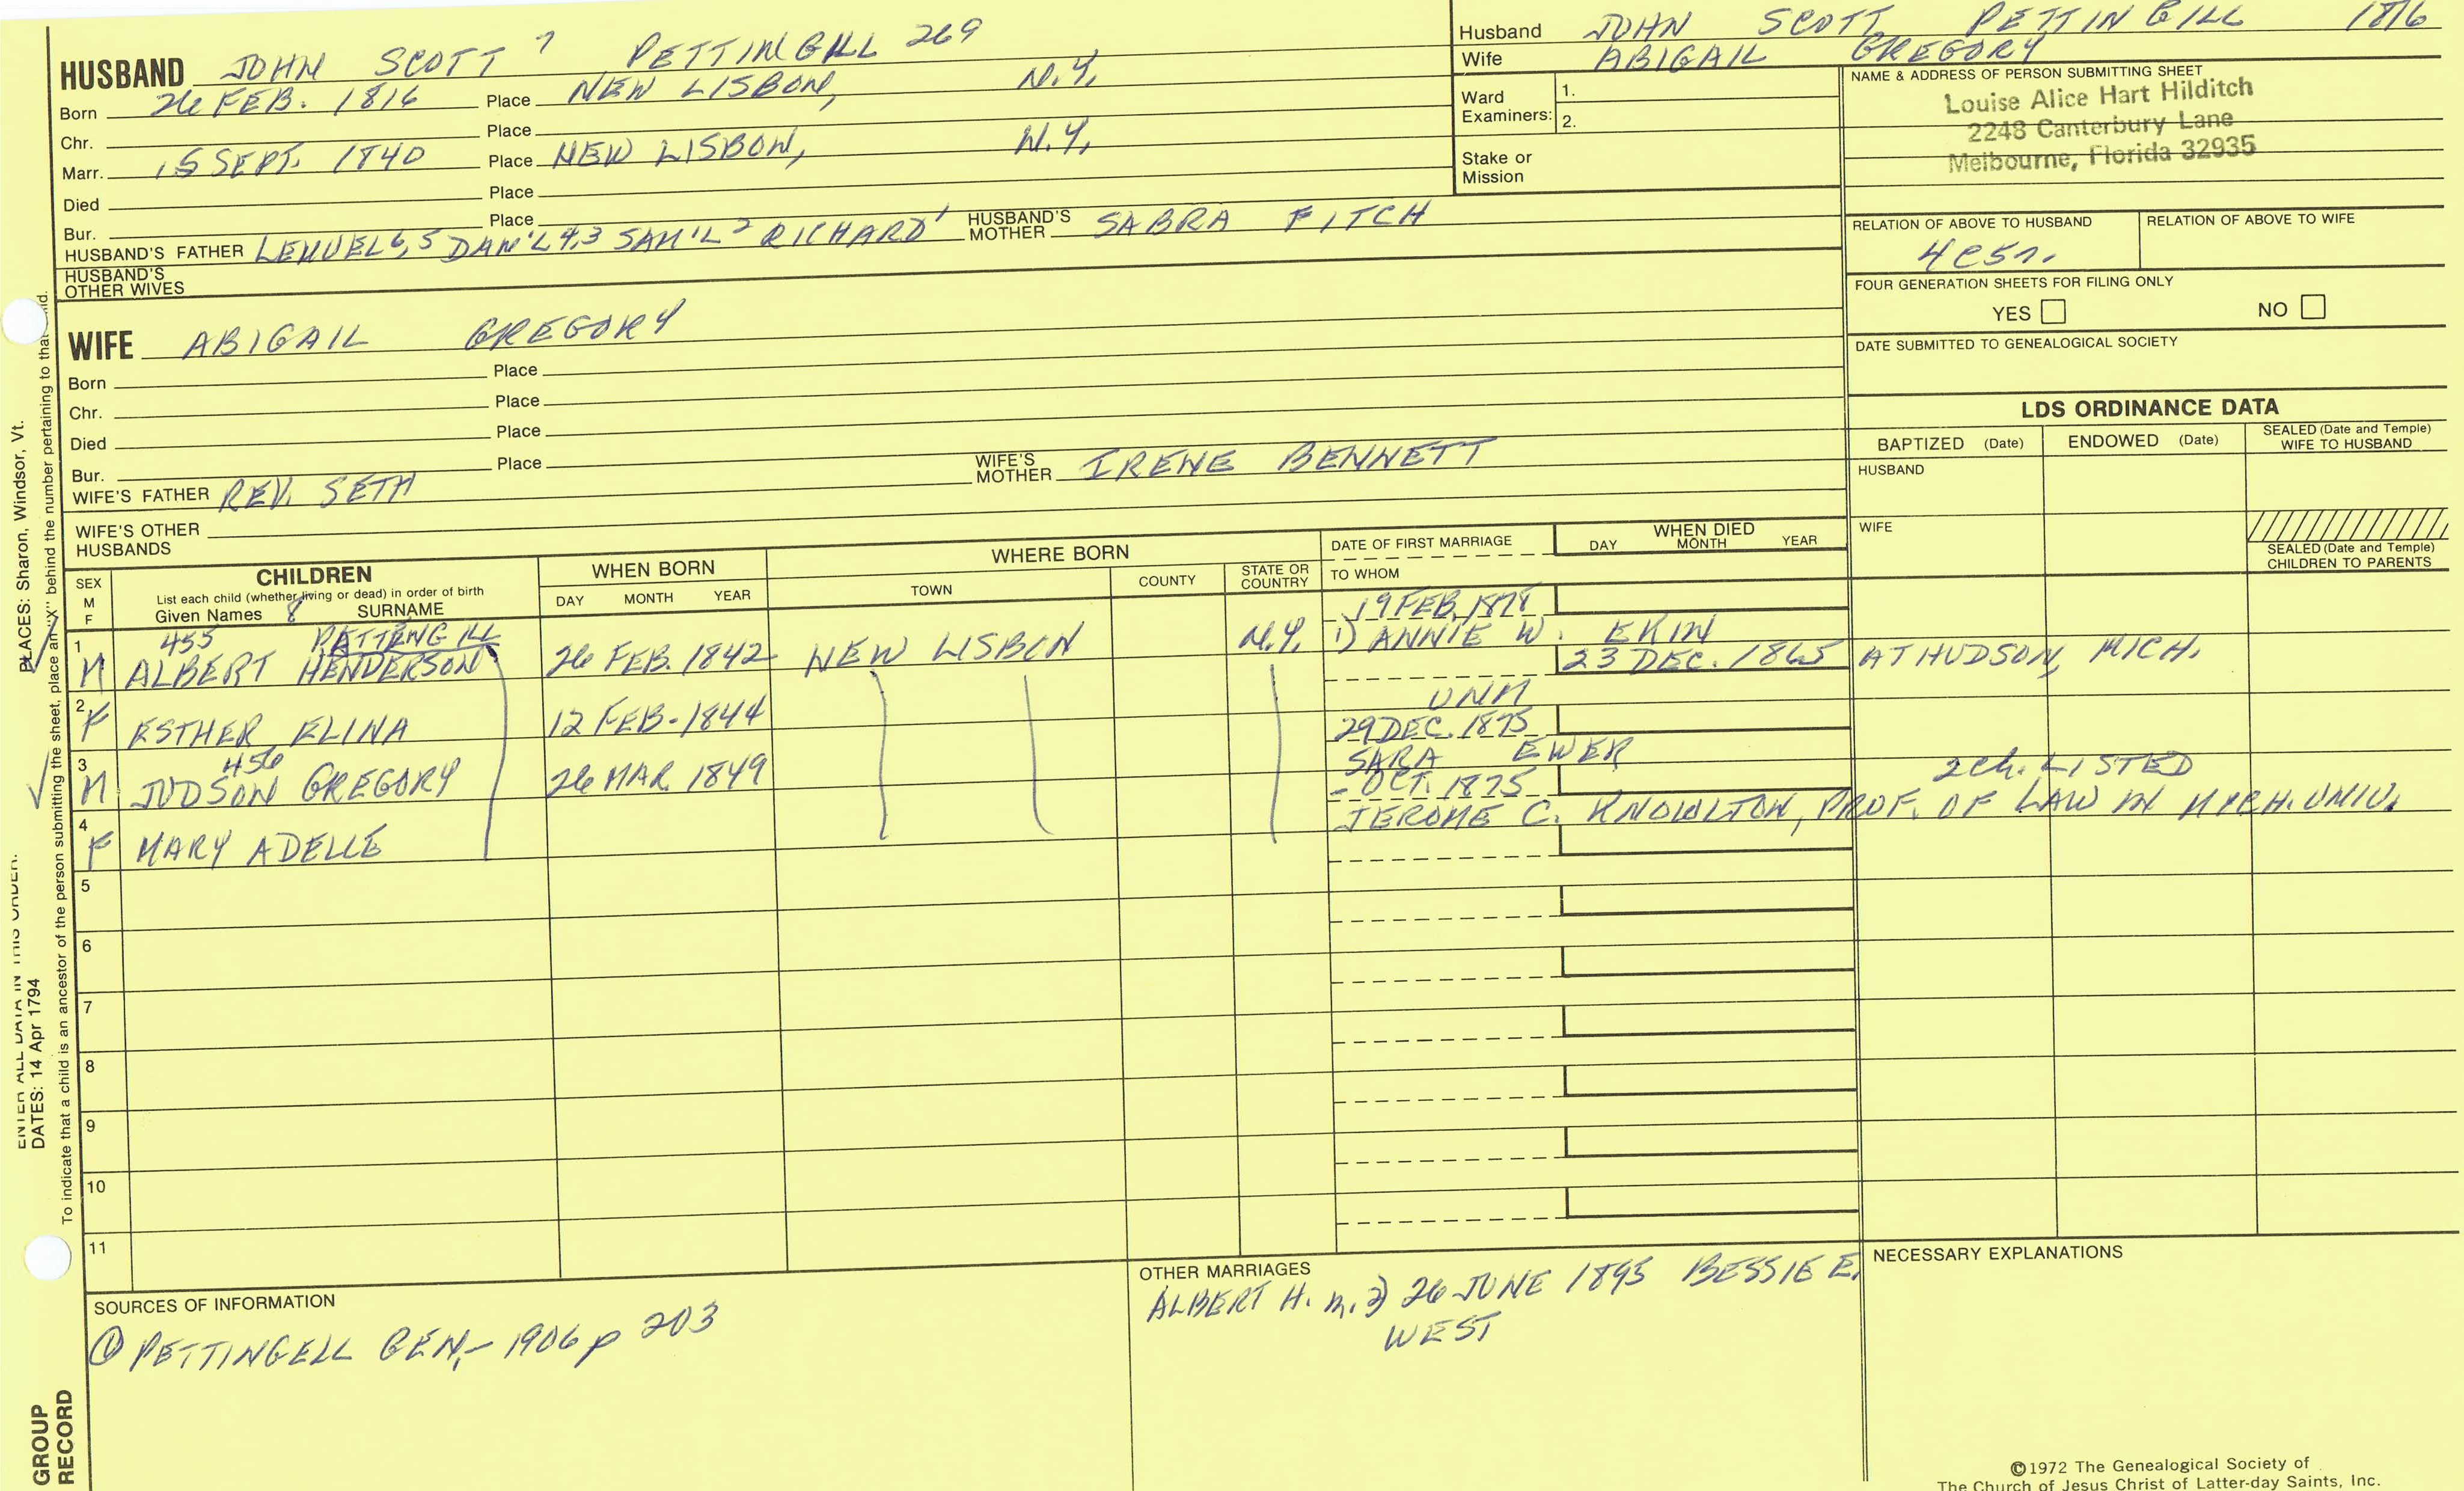 HUSBAND JOHN SCOTT 7 PETTINGILL 269
Born 26 FEB. 1816 Place NEW LISBON, N.Y.
Chr. Place
Marr. 15 SEPT. 1840 Place NEW LISBON, N.Y.
Died Place
Bur. Place
HUSBAND'S FATHER LEMUEL 6,5 DAN'L 4,3 SAM'L 2 RICHARD 1 HUSBAND'S MOTHER SABRA FITCH
HUSBAND'S OTHER WIVES
WIFE ABIGAIL GREGORY
Born Place
Chr. Place
Died Place
Bur. Place
WIFE'S FATHER REV. SETH WIFE'S MOTHER IRENE BENNETT
WIFE'S OTHER HUSBANDS
Husband JOHN SCOTT PETTINGILL 1816
Wife ABIGAIL GREGORY
Ward Examiners: 1.
2.
Stake or Mission
NAME & ADDRESS OF PERSON SUBMITTING SHEET
Louise Alice Hart Hilditch
2248 Canterbury Lane
Melbourne, Florida 32935
RELATION OF ABOVE TO HUSBAND RELATION OF ABOVE TO WIFE
FOUR GENERATION SHEETS FOR FILING ONLY
YES NO
DATE SUBMITTED TO GENEALOGICAL SOCIETY
LDS ORDINANCE DATA
BAPTIZED (Date) ENDOWED (Date) SEALED (Date and Temple) WIFE TO HUSBAND
HUSBAND
WIFE
SEALED (Date and Temple) CHILDREN TO PARENTS
SEX M F
CHILDREN
List each child (whether living or dead) in order of birth
Given Names 8 SURNAME
WHEN BORN
DAY MONTH YEAR
WHERE BORN
TOWN COUNTY STATE OR COUNTRY
DATE OF FIRST MARRIAGE
TO WHOM
WHEN DIED
DAY MONTH YEAR
455 PETTENGILL 19 FEB. 1878
1 M ALBERT HENDERSON 26 FEB. 1842 NEW LISBON N.Y. 1) ANNIE W. EKIN
23 DEC. 1865 AT HUDSON, MICH.
2 F ESTHER ELINA 12 FEB. 1844 UNM
456 29 DEC. 1875
3 M JUDSON GREGORY 26 MAR. 1849 SARA EWER 2 CH. LISTED
- OCT. 1875
4 F MARY ADELLE JEROME C. KNOWLTON, PROF. OF LAW IN MICH. UNIV.
5
6
7
8
9
10
11
SOURCES OF INFORMATION
① PETTINGELL GEN. - 1906 p 203
OTHER MARRIAGES
ALBERT H. m. 2) 26 JUNE 1895 BESSIE E.
WEST
NECESSARY EXPLANATIONS
©1972 The Genealogical Society of
The Church of Jesus Christ of Latter-day Saints, Inc.
ENTER ALL DATA IN THIS ORDER:
DATES: 14 Apr 1794
PLACES: Sharon, Windsor, Vt.
To indicate that a child is an ancestor of the person submitting the sheet, place an "X" behind the number pertaining to that child.
GROUP
RECORD